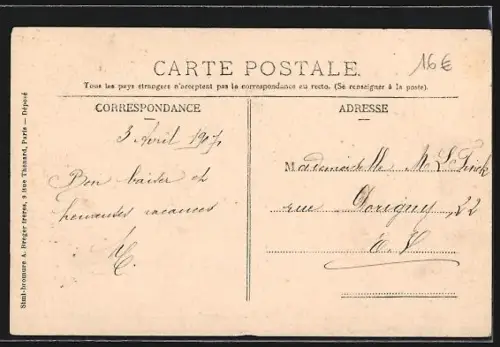 16€
CARTE POSTALE
Tous les pays étrangers n'acceptent pas la correspondance au recto. (Se renseigner à la poste).
CORRESPONDANCE
ADRESSE
3 Avril 1907
Bon baiser et
heureuses vacances
Mademoiselle M
rue Dorigny 22
E. V.
Simi-bromure A. Breger frères, 9 Rue Thénard, Paris — Déposé